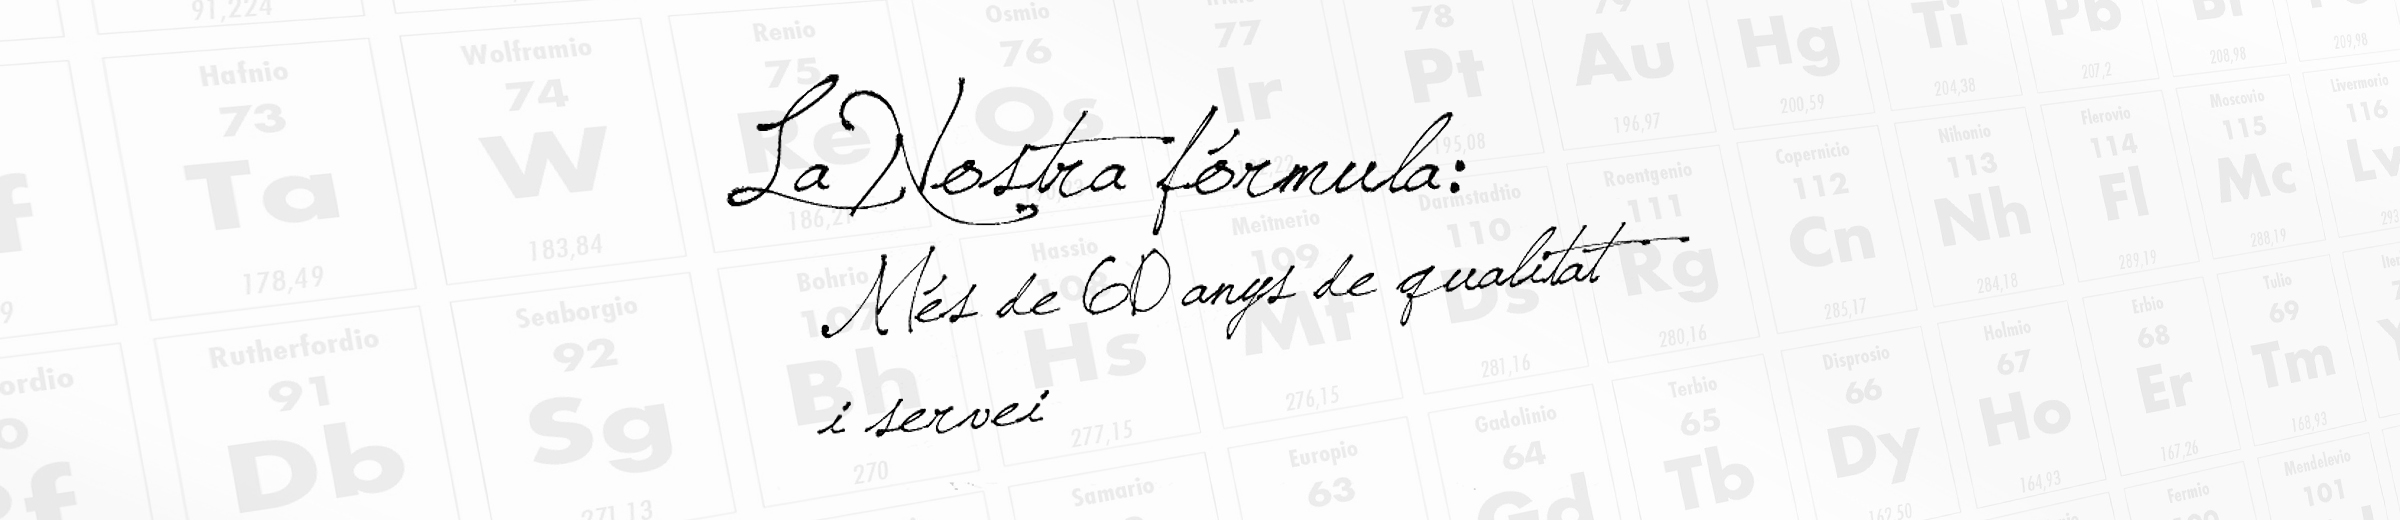 91,224
Osmio
78
79
Hg
Ti
Pb
Wolframio
Renio
76
77
Pt
Au
200,59
204,38
207,2
208,98
209,98
Hafnio
74
75
Os
Ir
195,08
196,97
73
W
Re
Ta
183,84
186,21
178,49
La Nostra fórmula:
Més de 60 anys de qualitat
i servei
Darmstadtio
Roentgenio
Copernicio
Nihonio
Flerovio
Moscovio
Livermorio
110
111
112
113
114
115
116
Ds
Rg
Cn
Nh
Fl
Mc
Lv
281,16
280,16
285,17
284,18
289,19
288,19
Rutherfordio
Seaborgio
Bohrio
Hassio
Meitnerio
91
92
107
109
Db
Sg
Bh
Hs
Mt
271,13
270
277,15
276,15
Samario
Europio
Gadolinio
Terbio
Disprosio
Holmio
Erbio
Tulio
63
64
65
66
67
68
69
Gd
Tb
Dy
Ho
Er
Tm
162,50
164,93
167,26
168,93
Fermio
Mendelevio
101